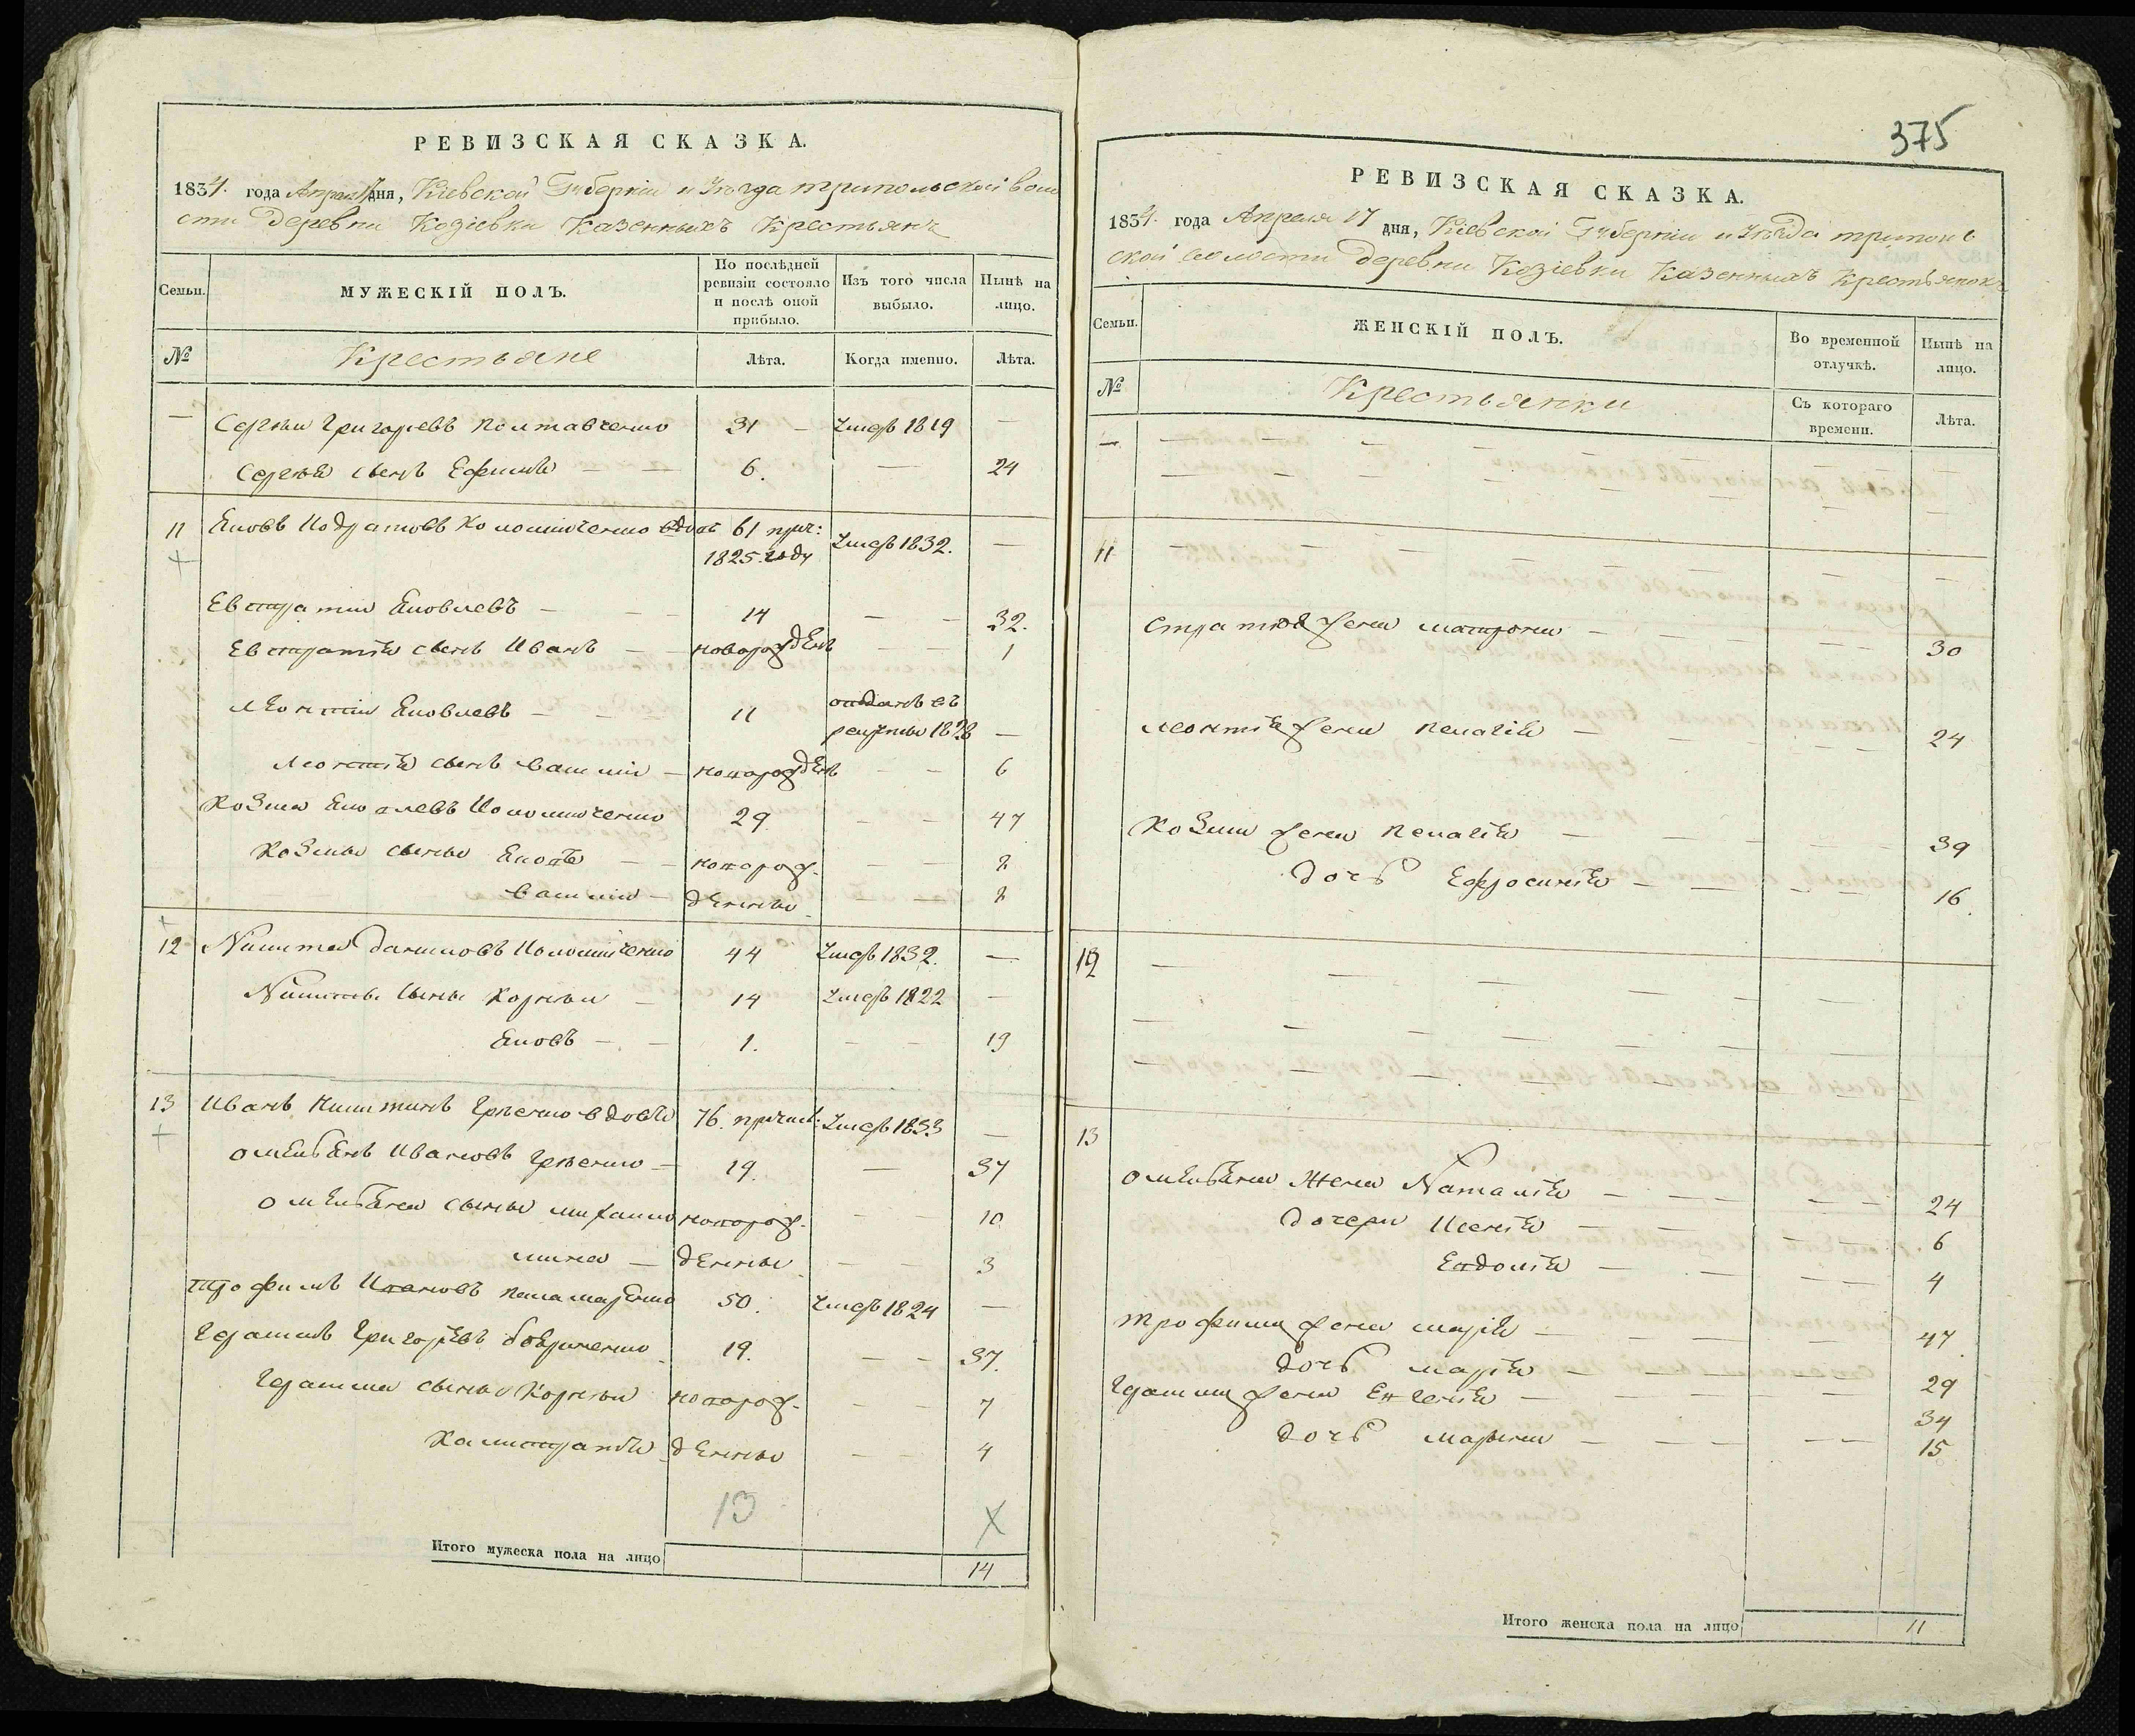 РЕВИЗСКАЯ СКАЗКА.
1834. года Апреля 17 дня, Кіевской Губерніи и Уѣзда трипольской воло
сти Деревни Козіевки Казенныхъ Крестьянъ
Семьи. МУЖЕСКІЙ ПОЛЪ. По послѣдней ревизіи состояло и послѣ оной прибыло. Изъ того числа выбыло. Нынѣ на лицо.
№ Крестьяне Лѣта. Когда именно. Лѣта.
— Сергѣй Григорьевъ Полтавченко 31 — Умеръ 1819 —
Сергѣя сынъ Ефимъ — — 6. — 24
11 Яковъ Кодратовъ Коломійченко вдовъ 61 прич: Умеръ 1832. —
1825. году
Евстратій Яковлевъ — — 14 — — 32.
Евстратія сынъ Иванъ — новорожденъ — — 1
Леонтій Яковлевъ — — — 11 отданъ въ
рекруты 1828 —
Леонтія сынъ Василій — новорожденъ — — 6
Козма Яковлевъ Коломійченко 29 — — 47
Козмы сыны Яковъ — — новорож- — — 2
Василій — денны — — 2
12 Никита Даниловъ Коломійченко 44 Умеръ 1832. —
Никиты сыны Корнѣй — 14 Умеръ 1822 —
Яковъ — — 1. — — 19
13 Иванъ Никитинъ вдовъ 76. причис: Умеръ 1833 —
Омельянъ Ивановъ — 19. — 37
Омельяна сыны Михайло новорож- — — 10
Мина — денны — — 3
Трофимъ Ивановъ Паламаренко 50. Умеръ 1824 —
Герасимъ Григорьевъ 19. — — 37.
Герасима сыны Корнѣй новорож- — — 7
Калистратъ денны — — 4
13 X
Итого мужеска пола на лицо 14
375
РЕВИЗСКАЯ СКАЗКА.
1834. года Апреля 17 дня, Кіевской Губерніи и Уѣзда триполь
ской волости Деревни Козіевки Казенныхъ Крестьянокъ
Семьи. ЖЕНСКІЙ ПОЛЪ. Во временной отлучкѣ. Нынѣ на лицо.
№ Крестьянки Съ котораго времени. Лѣта.
11
жена Матрона — 30
Леонтія жена Пелагія — 24
Козмы жена Пелагія — 39
дочь Ефросинія — 16
12
13
Омельяна Жена Наталія — 24
дочери Ксенія — 6
Евдокія — 4
Трофима жена Марія — 47
дочь Марія — 29
Герасима жена Евгенія — 34
дочь Марина — 15
Итого женска пола на лицо 11